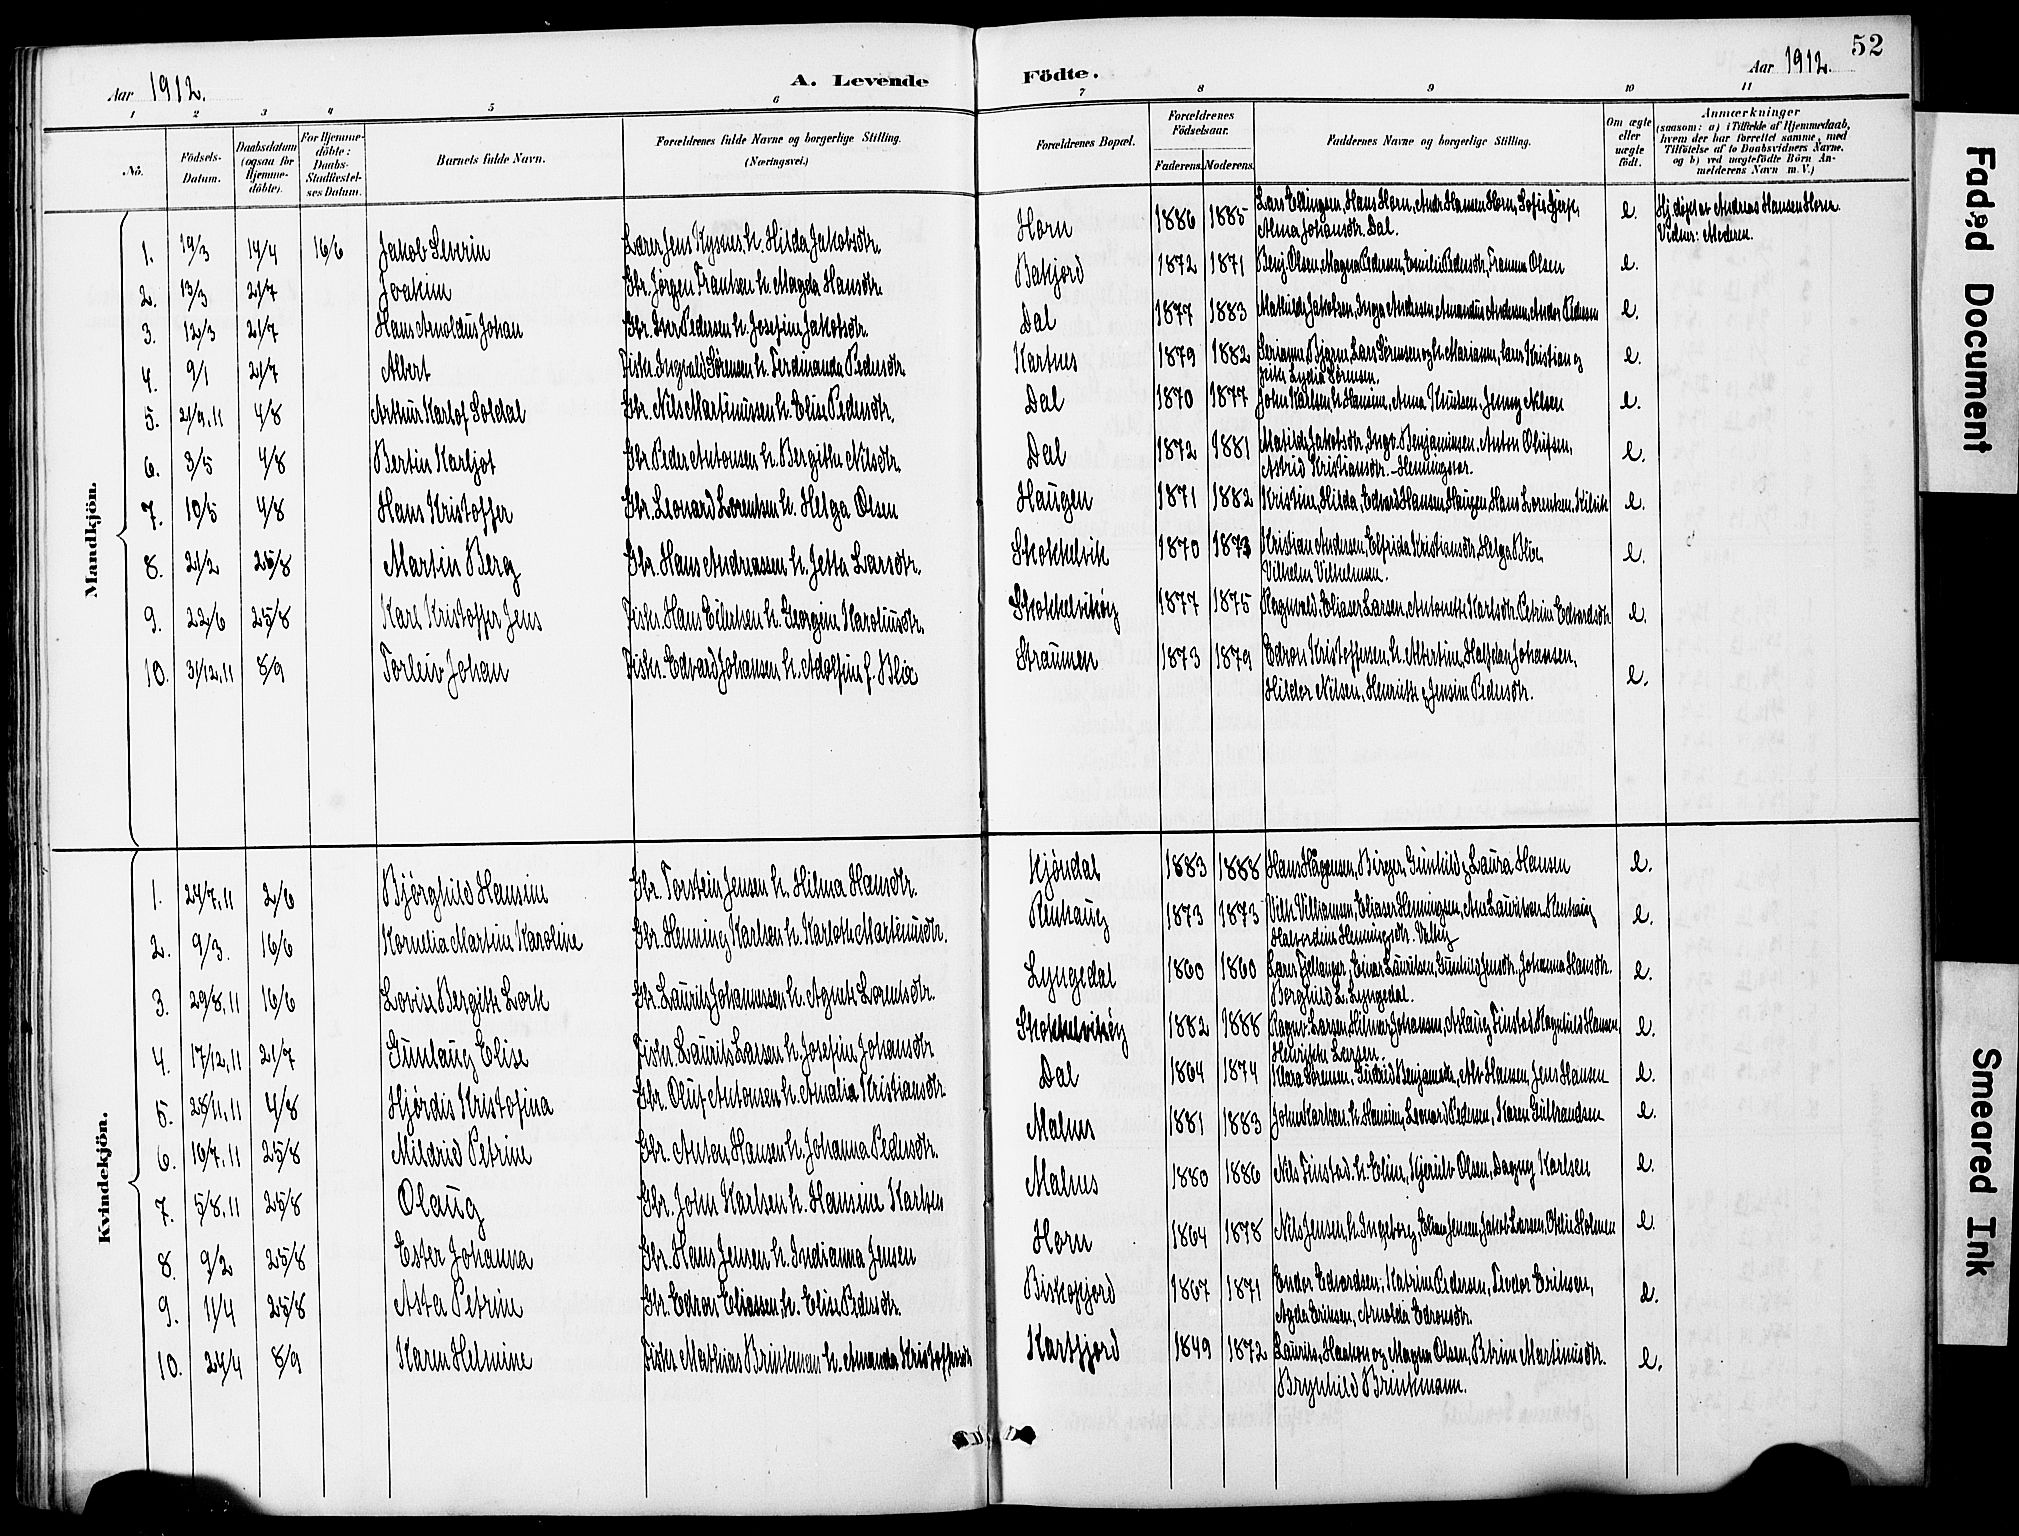 52
Aar 1912.
A. Levende
Födte.
Aar 1912.
1 2 3 4 5 6 7 8 9 10 11
Nô.
Födsels-
Datum.
Daabsdatum
(ogsaa for
Hjemme-
döbte).
For Hjemme-
döbte:
Daabs-
Stadfæstel-
ses Datum.
Barnets fulde Navn.
Forældrenes fulde Navne og borgerlige Stilling.
(Næringsvei.)
Forældrenes Bopæl.
Forældrenes
Födselsaar.
Faderens. Moderens.
Faddernes Navne og borgerlige Stilling.
Om ægte
eller
uægte
födt.
Anmærkninger
(saasom: a) i Tilfælde af Hjemmedaab,
hvem der har forrettet samme, med
Tilföielse af to Daabsvidners Navne,
og b) ved uægtefödte Börn An-
melderens Navn m. V.)
Mandkjön.
1. 19/3 14/4 16/6 Jakob Severin Lærer Jens h. Hilda Jakobsdtr. Horn 1886 1885 Lars Ellingsen, Hans Horn, Andr. Hansen Horn, Sofie
Alma Johansdtr. Dal. e. Hj.døpt av Andreas Hansen Horn.
Vidner: Moderen.
2. 13/3 21/7 Joakim Gbr. Jørgen Frantsen h. Magda Hansdtr. Bakjord 1872 1871 Benj. Olsen, Magna Pedersen, Emilie Pedersdtr, Olsen e.
3. 12/3 21/7 Hans Arnoldus Johan Gbr. Iver Pedersen h. Josefine Jakobsdtr. Dal 1877 1883 Mathilde Jakobsen, Inga Andersen, Amandus Andersen, Andor Pedersen e.
4. 9/1 21/7 Albert Fisker Ingvald Sörensen h. Ferdinande Pedersdtr. Kartnes 1879 1882 Bjorn, Lars Sörensen og h. Marianne, Lars Kristian og
Lydia Sörensen. e.
5. 21/9.11 4/8 Arthur Karlof Soldal Gbr. Nils Martinussen h. Eline Pedersdtr. Dal 1870 1877 John Karlsen h. Hansine, Anna Knudsen, Jenny Nilsen e.
6. 3/5 4/8 Bertin Karljot Gbr. Peder Antonsen h. Bergithe Nilsdtr. Dal 1872 1881 Matilde Jakobsdtr, Ingv. Benjaminsen, Anton Olufsen,
Astrid Kristiansdtr. - Henningsvær. e.
7. 10/5 4/8 Hans Kristoffer Gbr. Leonard Lorentsen h. Helga Olsen Haugen 1871 1882 Kristine, Hilda, Edvard Hansen, Haugen, Hans Lorentsen, Kilvik e.
8. 21/2 25/8 Martin Berg Gbr. Hans Andreassen h. Jetta Larsdtr. Stokkelvik 1870 1873 Kristian Andersen, Elfrida Kristiansdtr, Helga Blix,
Vilhelm Vilhelmsen. e.
9. 22/6 25/8 Karl Kristoffer Jens Fisker Hans Eilertsen h. Georgine Karoliusdtr. Stokkelvikøy 1877 1875 Ragnvald, Eliaser Larsen, Antonette Karlsdtr. Petrine Edvardsdtr e.
10. 31/12.11 8/9 Torleiv Johan Fisker. Edvard Johansen h. Adolfine f. Blix Straumen 1873 1879 Edron Kristoffersen, h. Albertine, Halfdan Johansen,
Hildor Nilsen, Henriette & Jensine Pedersdtr. e.
Kvindekjön.
1. 24/7.11 2/6 Bjørghild Hansine Gbr. Torstein Jensen h. Hilma Hansdtr. Kjöndal 1883 1888 Hans Hågensen, Birger, Gunhild & Laura Hansen e.
2. 9/3. 16/6 Kornelia Martine Karoline Gbr. Henning Karlsen h. Karlotte Martinusdtr. Renhaug 1873 1873 Vilh. Villiamsen, Eliaser Henningsen, Ane Lauritsen Renhaug
Halvordine Henningsdtr. Valbg e.
3. 29/8.11 16/6 Lovise Bergitte Lork Gbr. Laurits Johannessen h. Agnete Lorentsdtr. Lyngedal 1860 1860 Lærer Fjellanger, Einar Lauritsen, Gunhild Jensdtr. Johanna Hansdtr.
Borghild L. Lyngedal. e.
4. 17/12.11 21/7 Gunlaug Elise Fisker. Laurits Larsen h. Josefine Johansdtr Stokkelvikøy 1882 1888 Ragnv. Larsen, Hilmar Johansen, Aslaug Finstad, Ragnhild Hansen,
Henrikke Larsen. e.
5. 28/11.11 4/8 Hjördis Kristofina Gbr. Oluf Antonsen h. Amalia Kristiansdtr. Dal 1864 1874 Klara Sörensen, Gudrid Benjaminsdtr, Alv Hansen, Jens Hansen e.
6. 16/7.11 25/8 Mildrid Petrine Gbr. Anton Hansen h. Johanna Pedersdtr. Malnes 1881 1883 John Karlsen h. Hansine, Leonard Pedersen, Karen Gulbrandsen e.
7. 5/8.11 25/8 Olaug Gbr. John Karlsen h. Hansine Karlsen Malnes 1880 1886 Nils Finstad h. Eline, Kjerulv Olsen, Dagny Karlsen e.
8. 9/2 25/8 Ester Johanna Gbr. Hans Jensen h. Indianna Jensen Horn 1864 1878 Nils Jensen h. Ingeborg, Jensen, Jakob Larsen, Otelie Holmen e.
9. 11/4 25/8 Asta Petrine Gbr. Edron Eliassen h. Elise Pedersdtr. Biskopjord 1867 1871 Endor Edvardsen, Katrine Pedersen, Teodor Eriksen,
Agda Eriksen, Arnolda Edronsdtr. e.
10. 24/4 8/9 Karen Helmine Fisker Mathias Brinkman h. Amanda Kristoffersdtr Kartfjord 1849 1872 Laurits, Haakon og Magna Olsen, Petrine Martinusdtr.
Brynhild Brinkmann. e.
Faded Document
Smeared Ink